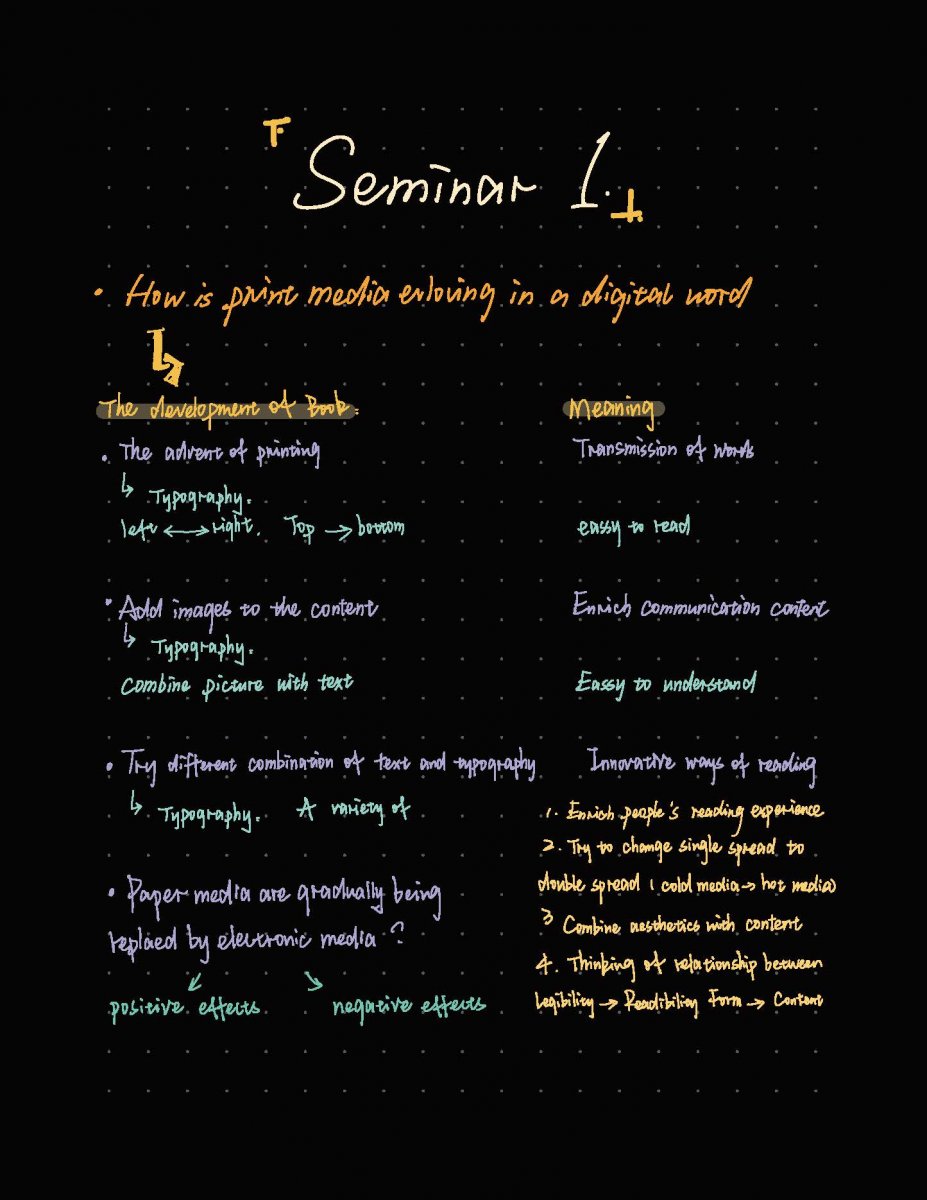 Seminar 1.
• How is print media evloving in a digital word
The development of Book:
Meaning
• The advent of printing
Transmission of words
↳ Typography.
left ⟷ right. Top → bottom
eassy to read
• Add images to the content
Enrich communication content
↳ Typography.
Combine picture with text
Eassy to understand
• Try different combination of text and typography
Innovative ways of reading
↳ Typography. A variety of
1. Enrich people's reading experience
2. Try to change single spread to
double spread ( cold media → hot media)
3 Combine aesthetics with content
4. Thinking of relationship between
Legibility → Readibility Form → Content
• Paper media are gradually being
replaed by electronic media ?
positive effects
negative effects